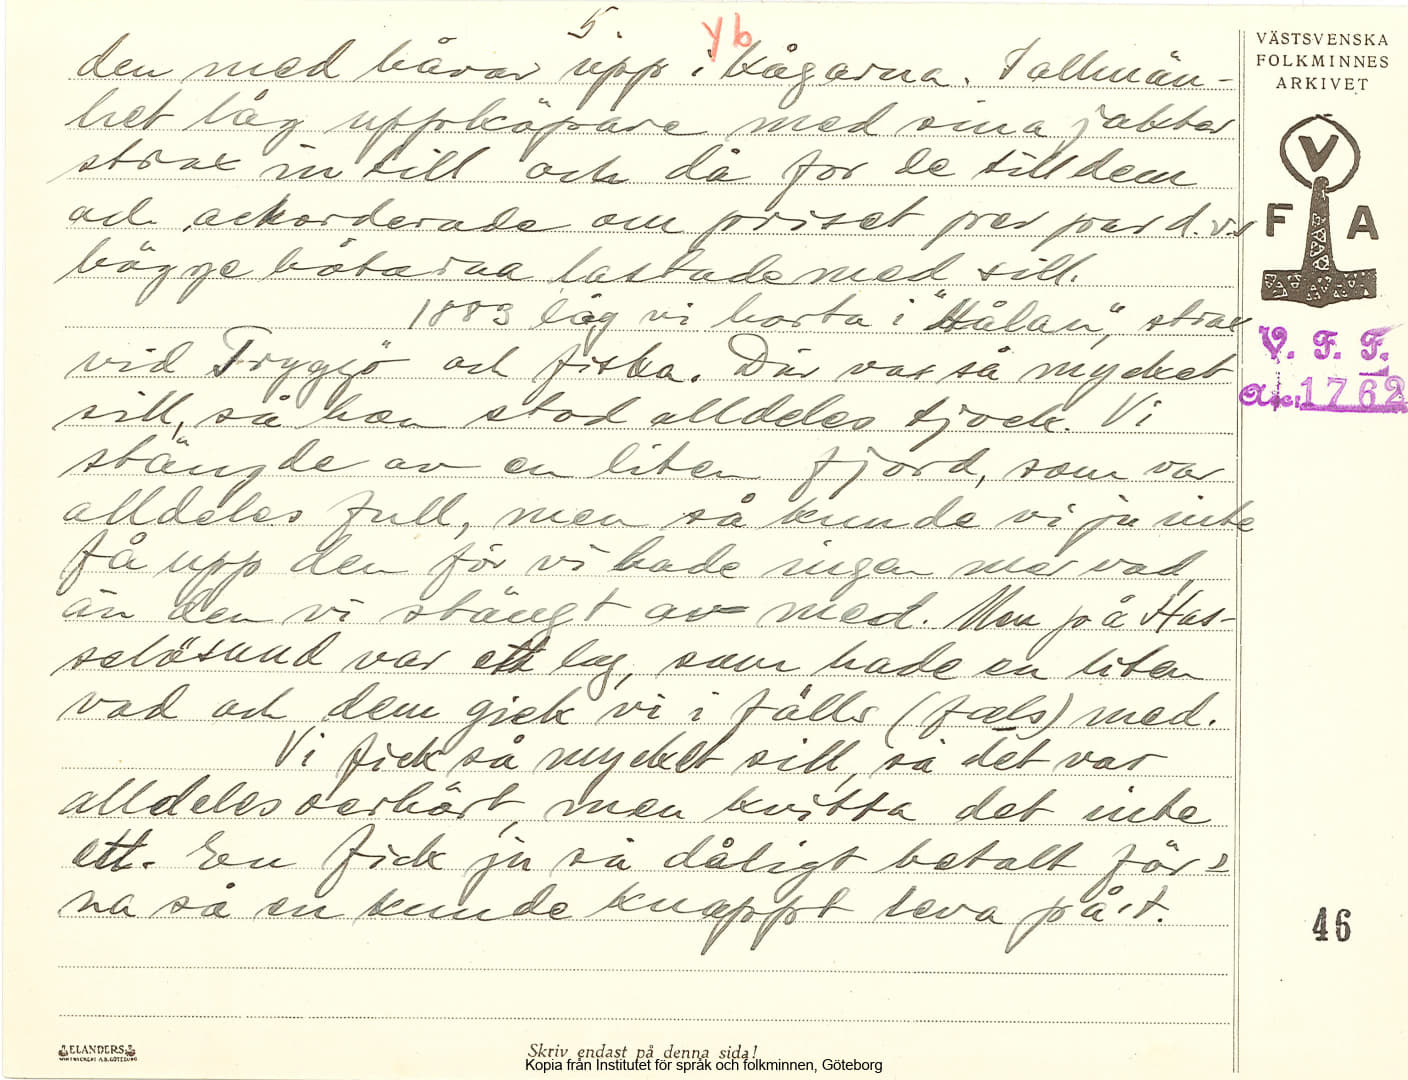 5.
yb
den med håvar upp i kågarna. I allmän-
het låg uppköpare med sina jaktar
strax intill och då for de till dem
och ackorderade om priset per par d.v.s
bägge båtarna lastade med sill.
1883 låg vi borta i "Hålan", strax
vid Tryggö och fiska. Där var så mycket
sill, så han stod alldeles tjock. Vi
stängde av en liten fjord, som var
alldeles full, men så kunde vi ju inte
få upp den för vi hade ingen mer vad,
än den vi stängt av med. Men på Has-
selösund var ett lag, som hade en liten
vad och dem gick vi i fälls (fæls) med.
Vi fick så mycket sill, så det var
alldeles oerhört, men kvitta det inte
ett. En fick ju så dåligt betalt för
na så en kunde knappt leva på't.
VÄSTSVENSKA
FOLKMINNES
ARKIVET
V
F A
V. F. F.
Acc. 1762
46
ELANDERS
Skriv endast på denna sida!
Kopia från Institutet för språk och folkminnen, Göteborg